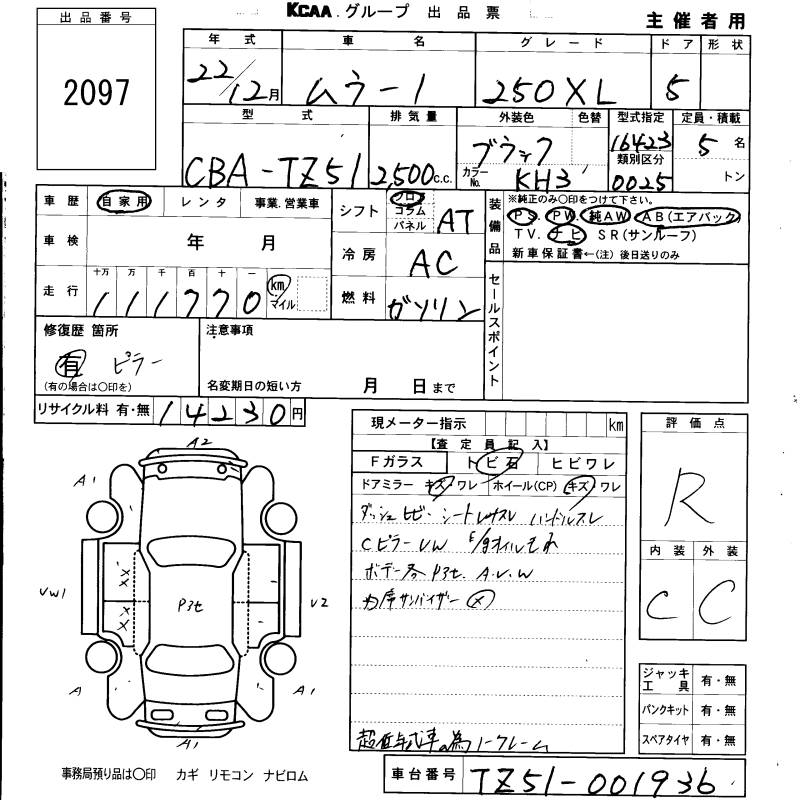 KCAA グループ 出品票
主催者用
出品番号
2097
年式 車名 グレード ドア 形状
22/12月 ムラーノ 250XL 5
型式 排気量 外装色 色替 型式指定 定員・積載
CBA-TZ51 2,500c.c. ブラック 16423 5名
カラーNo. KH3 類別区分 0025 トン
車歴 自家用 レンタ 事業.営業車
シフト フロア コラム パネル AT
装備品 ※純正のみ〇印をつけて下さい。
PS. PW. 純AW AB(エアバック)
TV. ナビ SR(サンルーフ)
新車保証書←(注) 後日送りのみ
車検 年 月
冷房 AC
走行 十万 万 千 百 十 一
111770 km マイル
燃料 ガソリン
セールスポイント
修復歴 箇所
有 ピラー
(有の場合は〇印を)
注意事項
名変期日の短い方 月 日まで
リサイクル料 有・無 14230円
現メーター指示 km
【査定員記入】
Fガラス トビ石 ヒビワレ
ドアミラー キズ・ワレ ホイール(CP) キズ・ワレ
ダッシュヒビ・シートレサスレ ハンドルスレ
CピラーUW E/gオイルモレ
ボデー各P3t. A.U.W
内席サンバイザー
超低年式車の為ノークレーム
評価点
R
内装 外装
C C
A2
A1
VW1
P3t
V2
A
A1
A1
ジャッキ工具 有・無
パンクキット 有・無
スペアタイヤ 有・無
事務局預り品は〇印 カギ リモコン ナビロム
車台番号 TZ51-001936